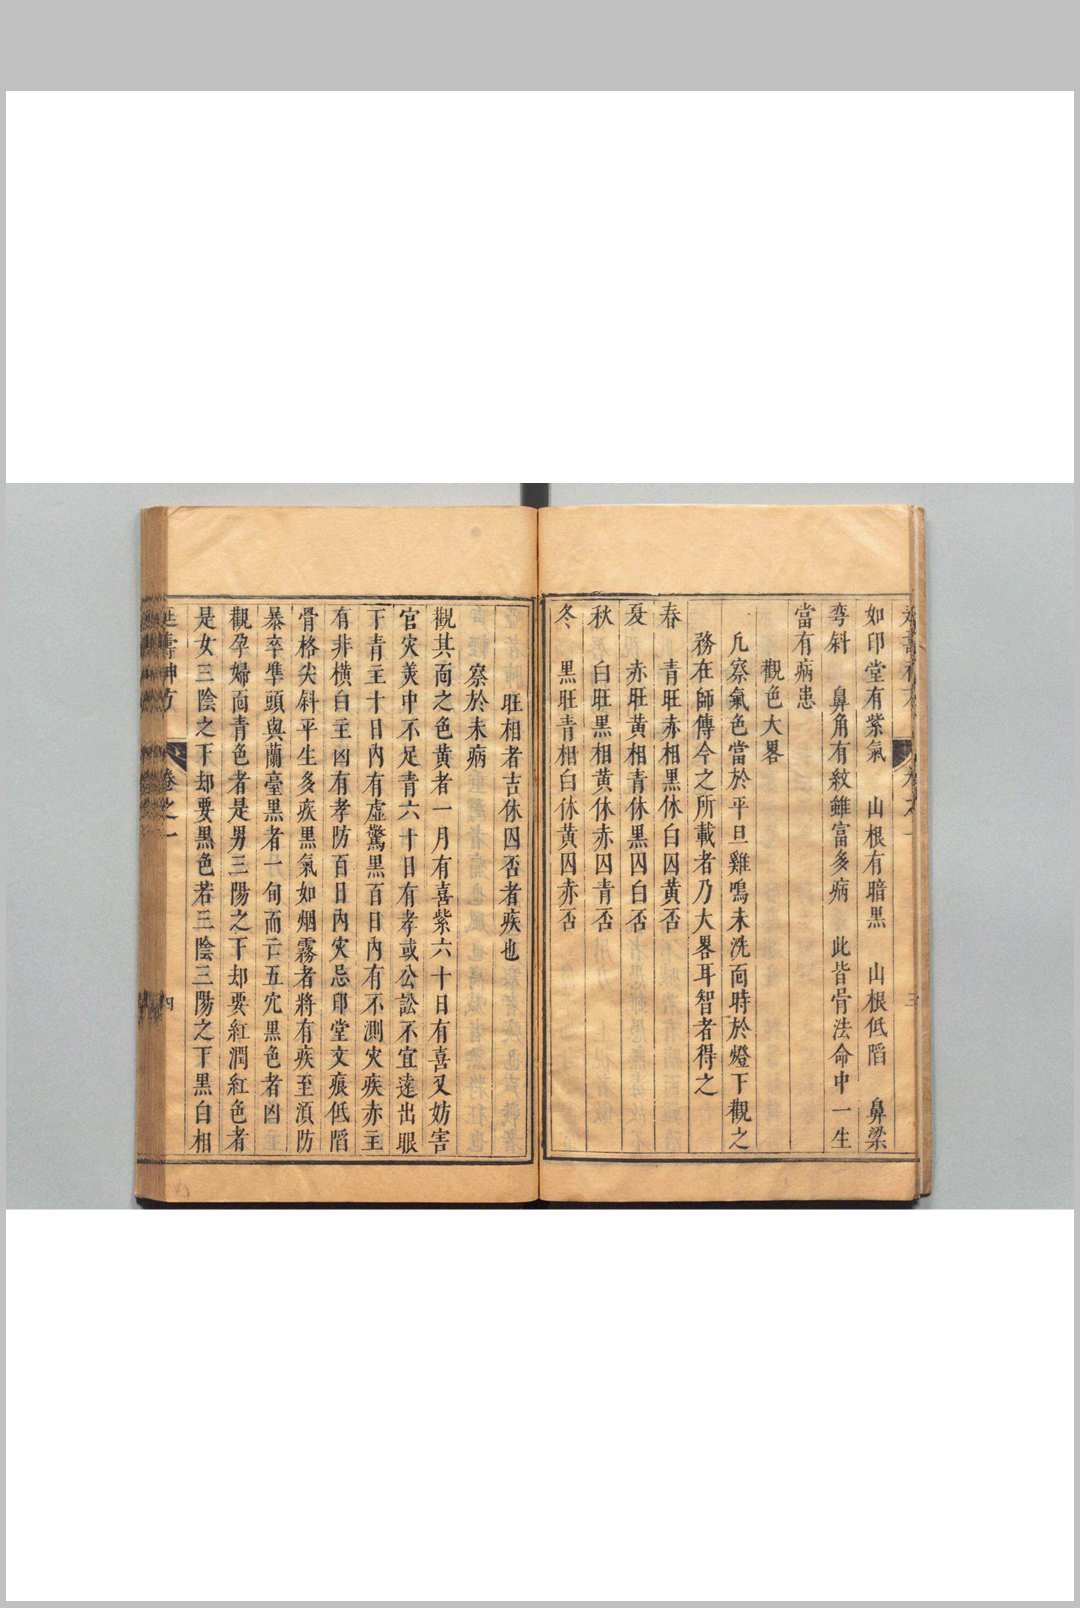 如印堂有紫氣　山根有暗黑　山根低陷　鼻梁
弯斜　鼻角有紋雖富多病　此皆骨法命中一生
當有病患
觀色大畧
凡察氣色當於平旦雞鳴未洗靣時於燈下觀之
務在師傳今之所載者乃大畧耳智者得之
春　青旺赤相黒休白囚黄否
夏　赤旺黄相青休黒囚白否
秋　白旺黒相黄休赤囚青否
冬　黒旺青相白休黄囚赤否
旺相者吉休囚否者疾也
察於未病
觀其靣之色黄者一月有喜紫六十日有喜又妨害
官灾羙中不足青六十日有孝或公訟不宜遠出眼
下青主十日內有虛驚黒百日內有不測灾疾赤主
有非横白主凶有孝防百日內灾忌印堂文痕低陷
骨格尖斜平生多疾黒氣如烟霧者將有疾至湏防
暴卒準頭與蘭臺黒者一旬而亡五穴黒色者凶
觀孕婦靣青色者是男三陽之下却要紅潤紅色者
是女三陰之下却要黒色若三陰三陽之下黒白相
延壽神方　卷之一　四